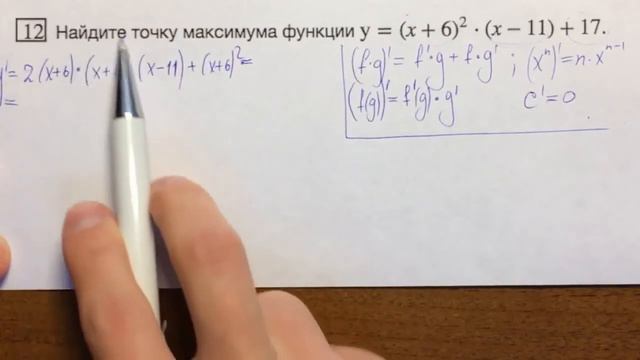 12 Найдите точку максимума функции y = (x + 6)² · (x − 11) + 17.
y' = 2(x+6)·(x+ (x−11) + (x+6)² =
=
(f·g)' = f'·g + f·g' ; (xⁿ)' = n·xⁿ⁻¹
(f(g))' = f'(g)·g' c' = 0